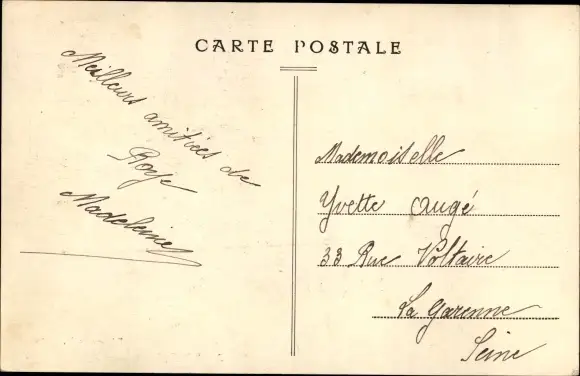 CARTE POSTALE
Meilleurs amitiées de
Roye
Madeleine
Mademoiselle
Yvette Augé
33 Rue Voltaire
La Garenne
Seine